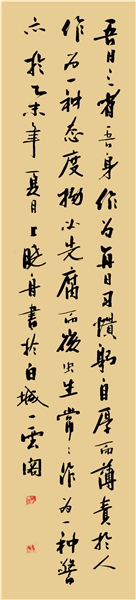 吾日三省吾身作为每日习惯躬自厚而薄责于人
作为一种态度物必先腐而后虫生常常作为一种警
示于乙未年夏日上晓舟书于白城一云阁